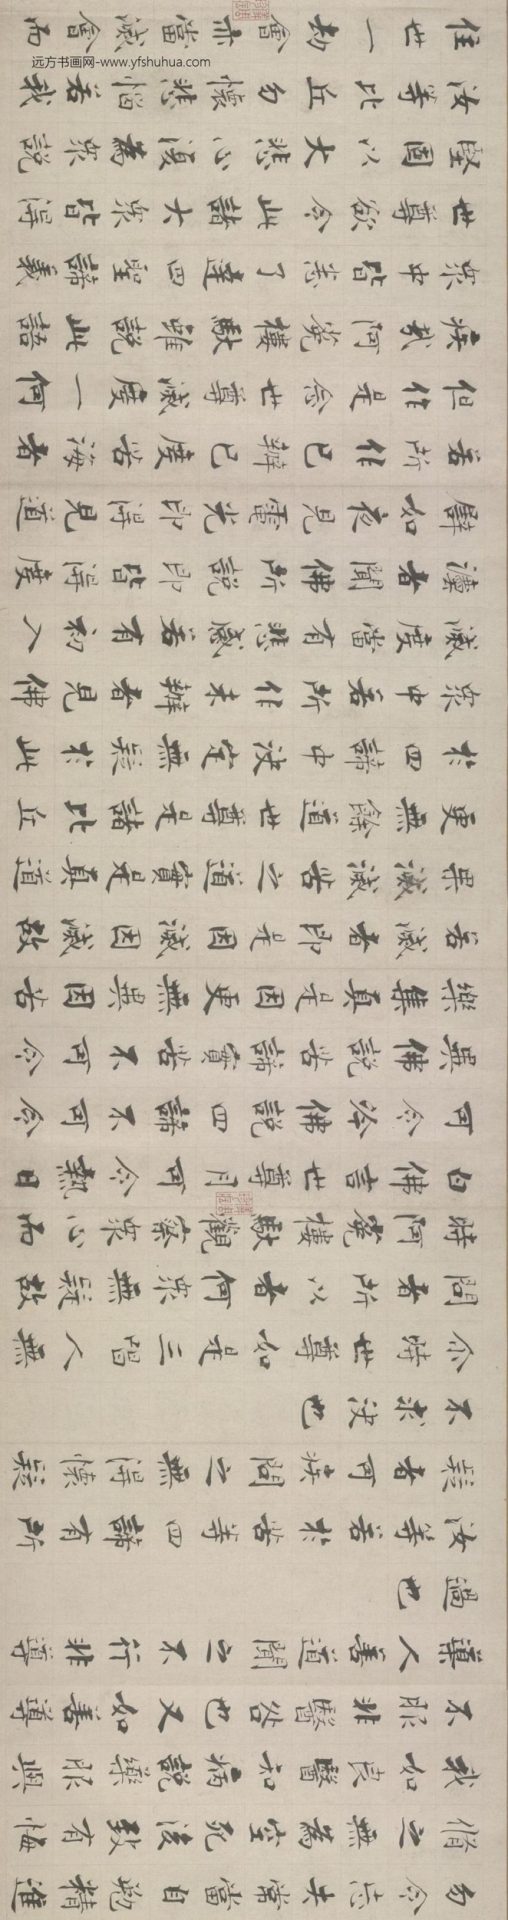 勿令忘失常當自勉精進
脩之無為空死後致有悔
我如良醫知病說藥服與
不服非醫咎也又如善導
導人善道聞之不行非導
過也
汝等若於苦等四諦有所
疑者可疾問之無得懷疑
不求決也
尒時世尊如是三唱人無
問者所以者何眾無疑故
時阿㝹樓馱觀察眾心而
白佛言世尊月可令熱日
可令冷佛說四諦不可令
異佛說苦諦實苦不可令
樂集真是因更無異因苦
若滅者即是因滅因滅故
果滅滅苦之道實是真道
更無餘道世尊是諸比丘
於四諦中決定無疑於此
眾中若所作未辦者見佛
滅度當有悲感若有初入
灋者聞佛所說即皆得度
譬如夜見電光即得見道
若所作已辦已度苦海者
但作是念世尊滅度一何
疾哉阿㝹樓馱雖說此語
眾中皆悉了達四聖諦義
世尊欲令此諸大眾皆得
堅固以大悲心復為眾說
汝等比丘勿懷悲惱若我
住世一劫會亦當滅會而
远方书画网-www.yfshuhua.com